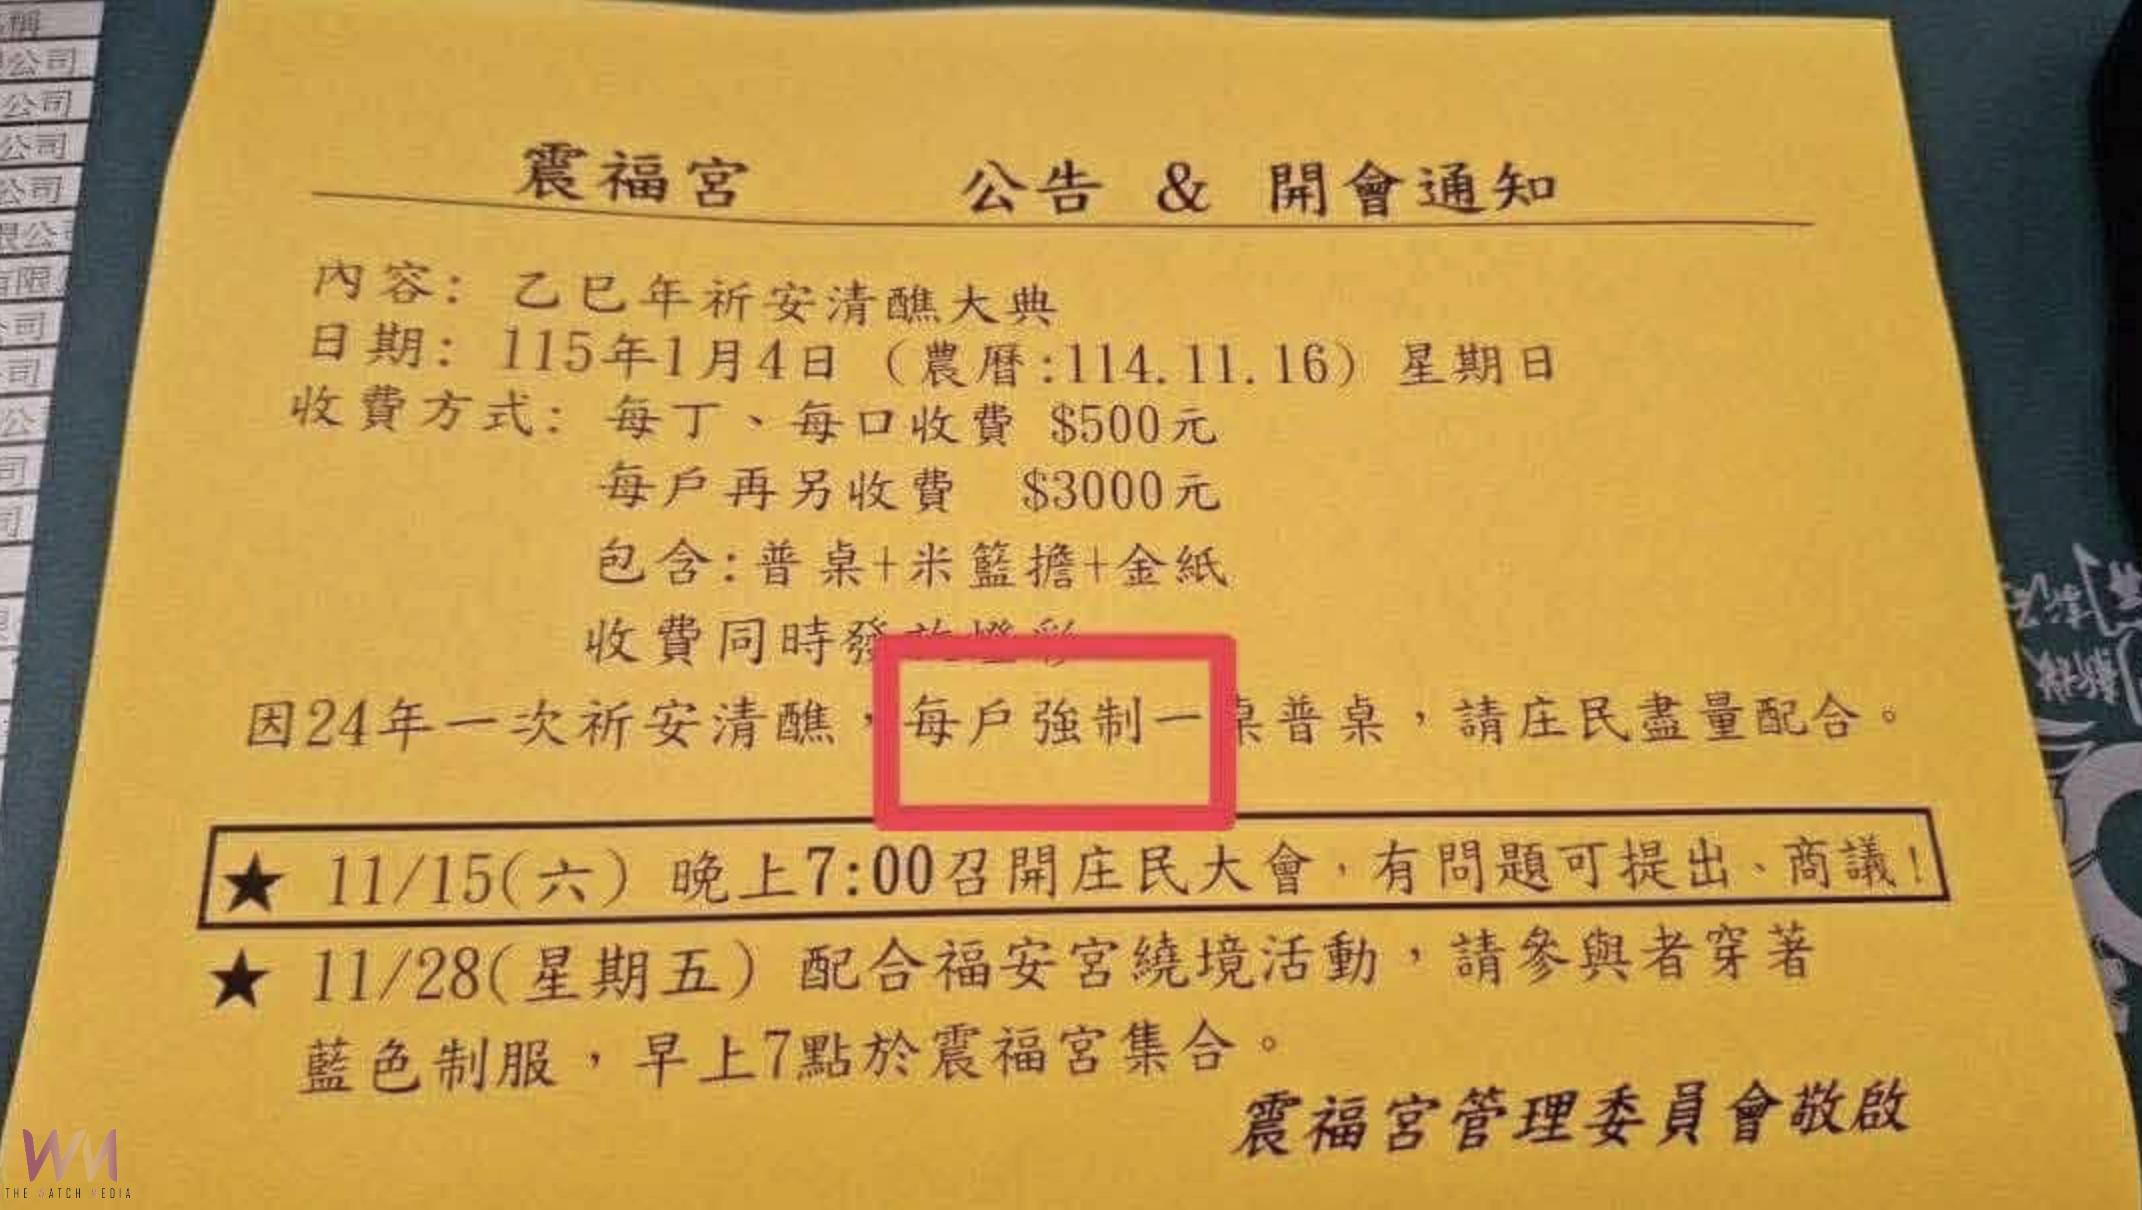 稱
公司
公司
公司
公司
限公
有限
公司
司
公
司
司
震福宮 公告 & 開會通知
內容: 乙巳年祈安清醮大典
日期: 115年1月4日 (農曆:114.11.16) 星期日
收費方式: 每丁、每口收費 $500元
每戶再另收費 $3000元
包含:普桌+米籃擔+金紙
收費同時發放燈彩
因24年一次祈安清醮,每戶強制一桌普桌,請庄民盡量配合。
★ 11/15(六) 晚上7:00召開庄民大會,有問題可提出、商議!
★ 11/28(星期五) 配合福安宮繞境活動,請參與者穿著
藍色制服,早上7點於震福宮集合。
震福宮管理委員會敬啟
WM
THE WATCH MEDIA